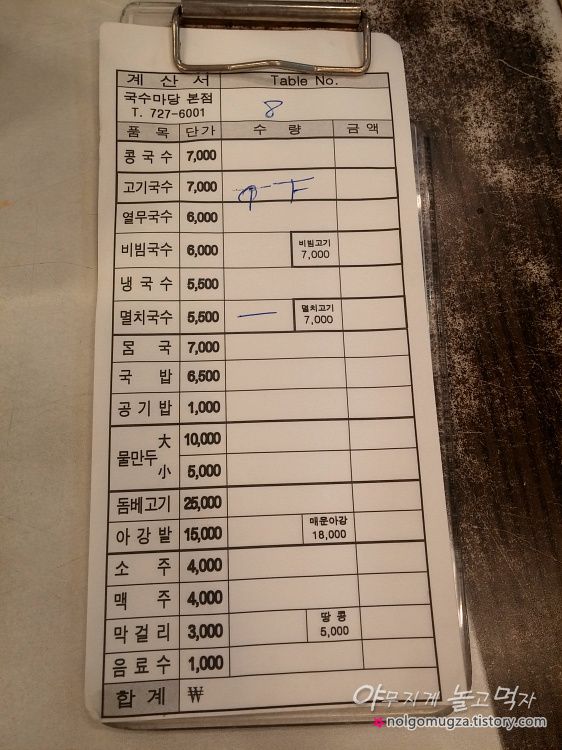 계산서 Table No.
국수마당 본점
T. 727-6001 8
품목 단가 수량 금액
콩국수 7,000
고기국수 7,000
열무국수 6,000
비빔국수 6,000 비빔고기 7,000
냉국수 5,500
멸치국수 5,500 一 멸치고기 7,000
몸국 7,000
국밥 6,500
공기밥 1,000
물만두 大 10,000
小 5,000
돔베고기 25,000
아강발 15,000 매운아강 18,000
소주 4,000
맥주 4,000
막걸리 3,000 땅콩 5,000
음료수 1,000
합계 ₩
야무지게 놀고먹자
nolgomugza.tistory.com